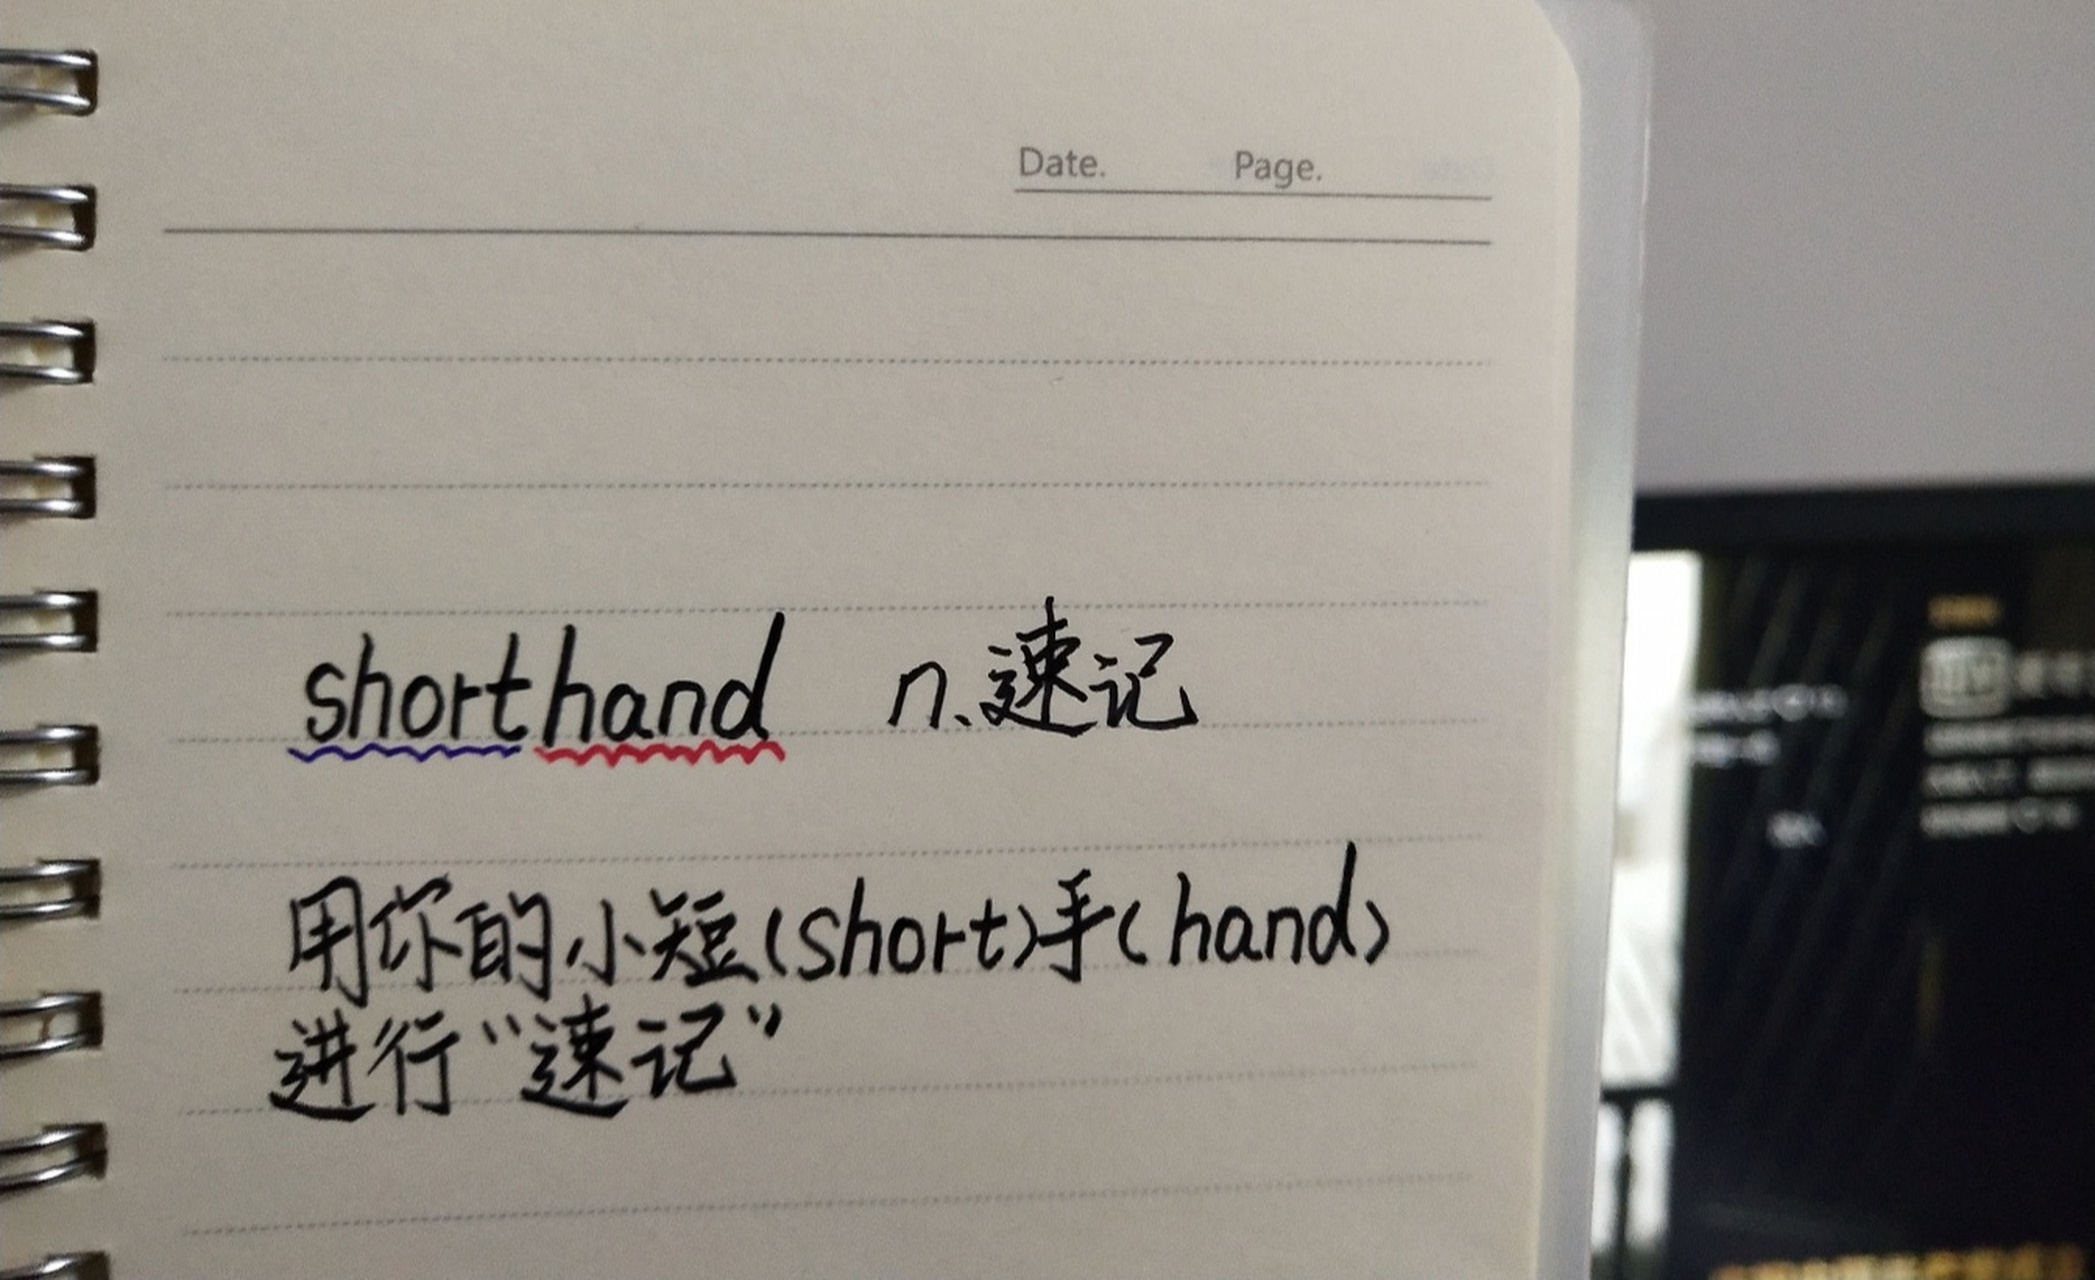 Date. Page.
shorthand n.速记
用你的小短(short)手(hand)
进行“速记”